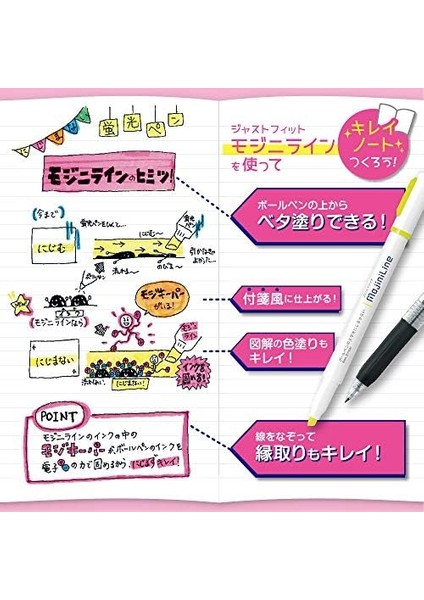 蛍光ペン
モジニラインのヒミツ!
(今まで)
にじむ
ボールペン
蛍光ペンをひくと…
にじむ〜
蛍光ペン
引かなきゃよかった…
汚れる〜
のびる〜
(モジニラインなら)
モジキーパーがいる!
モジニライン
にじまない
汚れない。
にじまない!
インクを固める!
POINT
モジニラインのインクの中の
モジキーパーが、ボールペンのインクを
電子の力で固めるから、にじまずキレイ!
ジャストフィット
モジニライン
を使って
キレイ
ノート
つくろう!
ボールペンの上から
ベタ塗りできる!
付箋風に仕上がる!
図解の色塗りも
キレイ!
線をなぞって
縁取りもキレイ!
MojiniLine